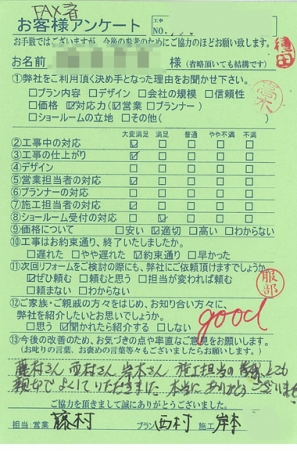 FAX済
お客様アンケート 工事 NO.
お手数ではございますが、今後の参考のためにご協力のほどお願い致します。
お名前 様(省略頂いても結構です)
①弊社をご利用頂く決め手となった理由をお聞かせ下さい。
□プラン内容 □デザイン □会社の規模 □信頼性
□価格 ☑対応力(☑営業 □プランナー)
□ショールームの立地 □その他(
大変満足 満足 普通 やや不満 不満
②工事中の対応 ☑ □ □ □ □
③工事の仕上がり ☑ □ □ □ □
④デザイン □ □ □ □ □
⑤営業担当者の対応 ☑ □ □ □ □
⑥プランナーの対応 □ □ □ □
⑦施工担当者の対応 ☑ □ □ □ □
⑧ショールーム受付の対応 □ ☑ □ □ □
⑨価格について □安い ☑適切 □高い □わからない
⑩工事はお約束通り、終了いたしましたか。
□遅れた □やや遅れた ☑約束通り □早かった
⑪次回リフォームをご検討の際にも、弊社にご依頼頂けますでしょうか
☑ぜひ頼む □頼むと思う □担当が変われば頼む
□頼まない □わからない
服部
⑫ご家族・ご親戚の方々をはじめ、お知り合い方々に、
弊社を紹介したいとお思いでしょうか。
□思う ☑聞かれたら紹介する □しない
good
⑬今後の改善のため、お気づきの点や率直なご意見をお願いします。
(お叱りの言葉、お褒めの言葉等々もございましたらお願いします。)
藤村さん 西村さん 岸本さん 施工担当の皆様 とても
親切でよくしていただきました 本当にありがとうございました
ご協力を頂きまして誠にありがとうございました。
担当:営業 藤村 プラン 西村 施工 岸本